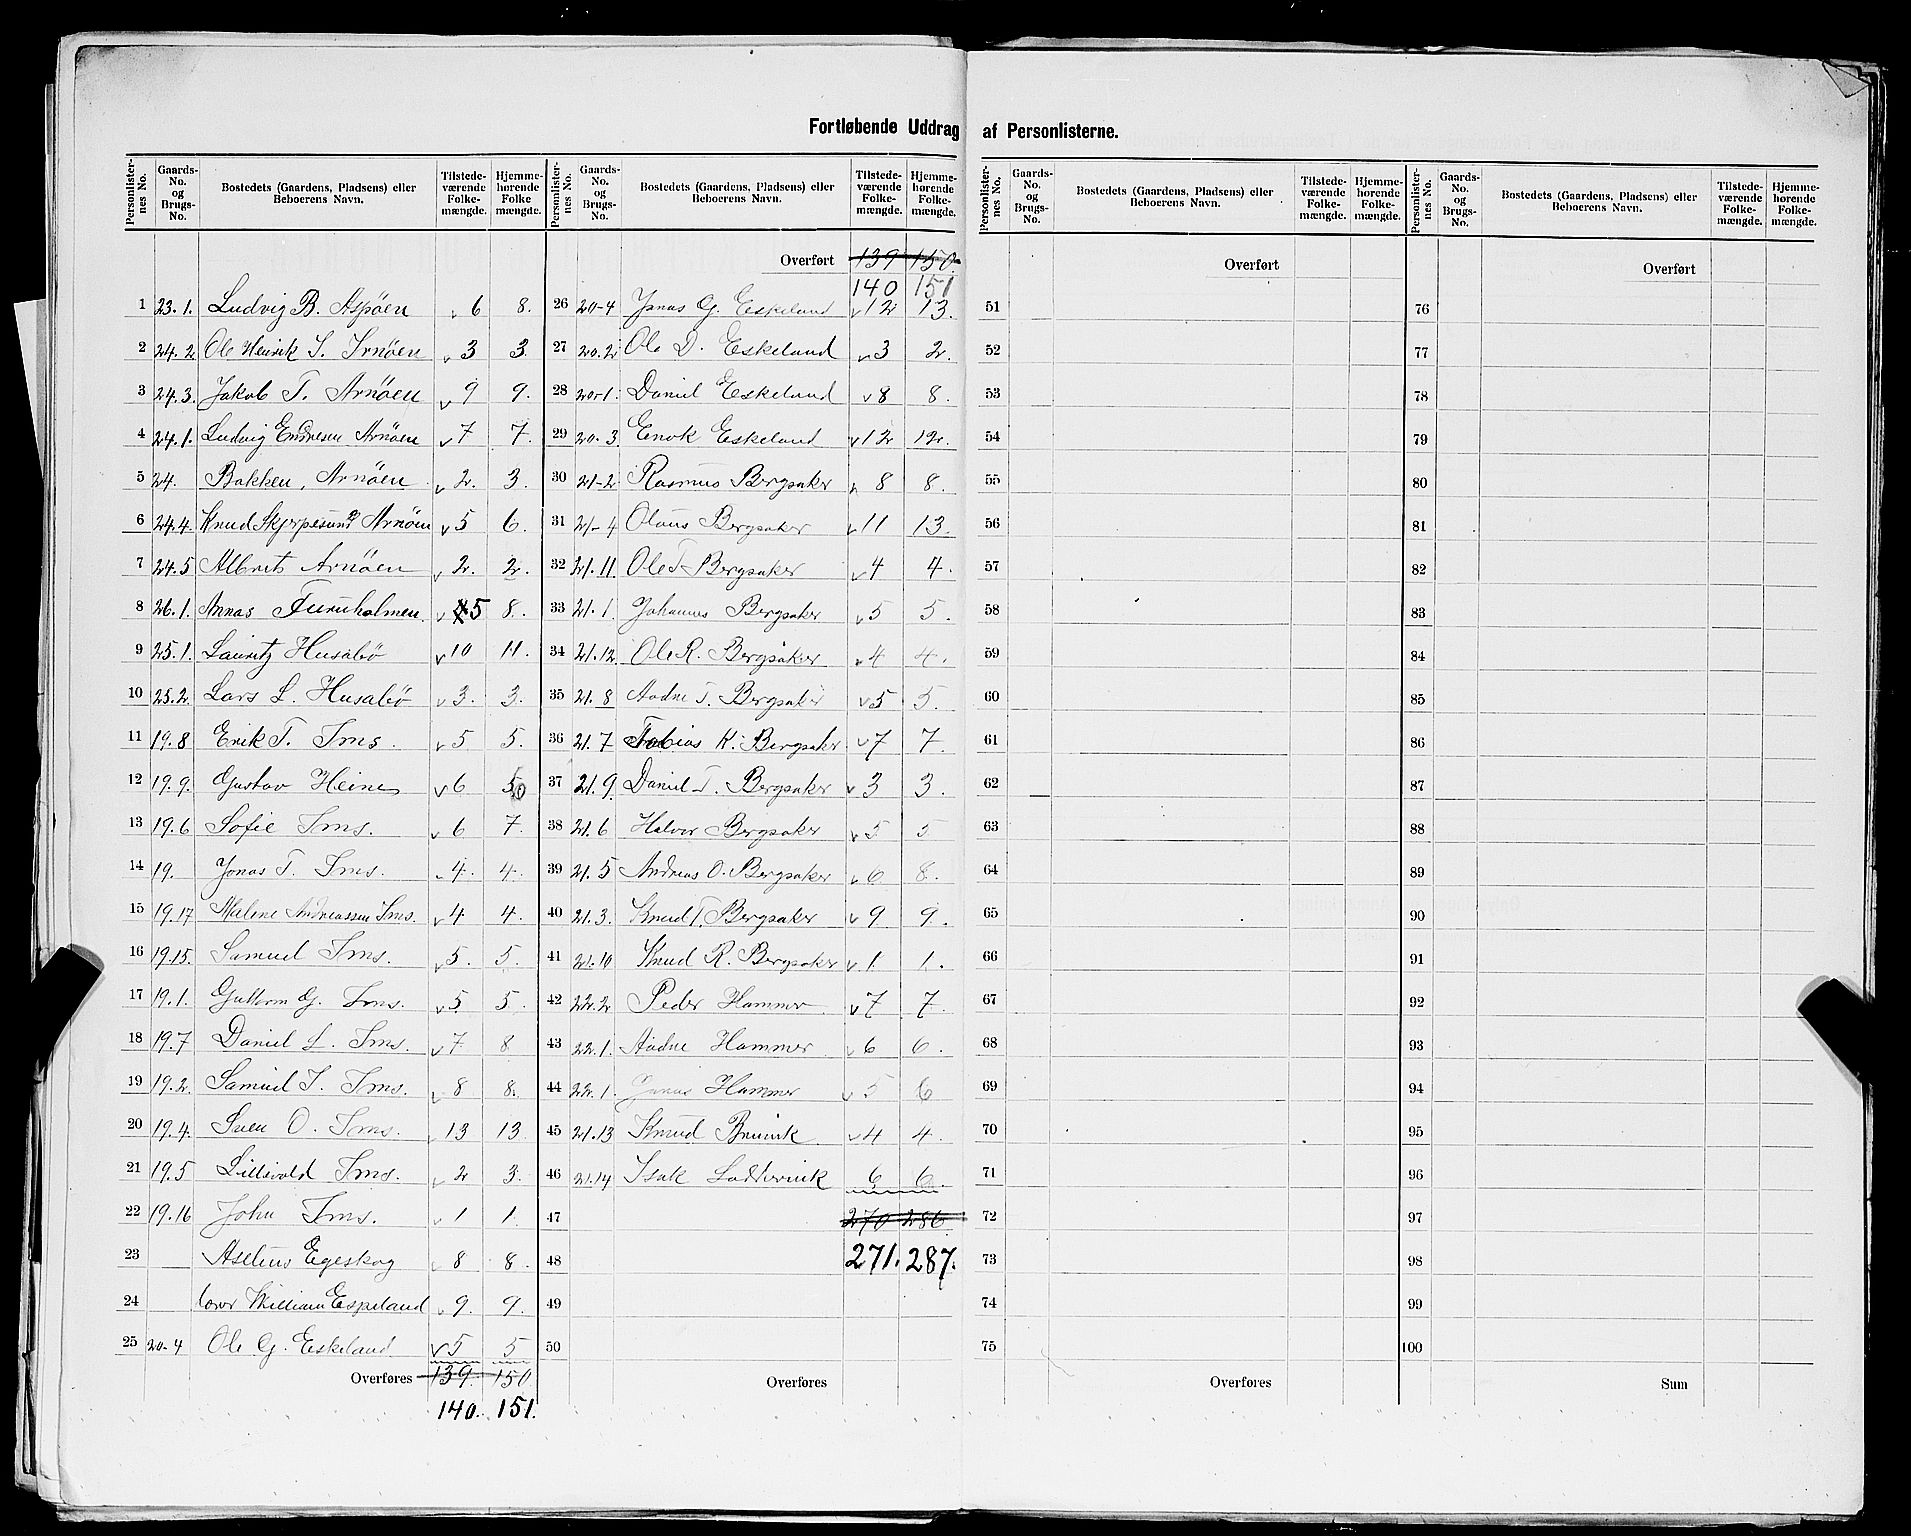 Fortløbende Uddrag af Personlisterne.
Personlister-nes No. Gaards-No. og Brugs-No. Bostedets (Gaardens, Pladsens) eller Beboerens Navn. Tilstede-værende Folke-mængde. Hjemme-hørende Folke mængde.
1 23.1. Ludvig B. Aspøen 6 8.
2 24.2 Ole Henrik S. Arnøen 3 3.
3 24.3. Jakob T. Arnøen 9 9.
4 24.1. Ludvig Endresen Arnøen 7 7.
5 24. Bakken, Arnøen 2. 3.
6 24.4. Knud Skjerpesund Arnøen 5 6.
7 24.5 Albrets Arnøen 2. 2.
8 26.1. Annas Furuholmen. 5 8.
9 25.1. Lauritz Husabø 10 11.
10 25.2. Lars L. Husabø 3. 3.
11 19.8 Erik T. Ims. 5 5.
12 19.9. Gustav Heine 6 5
13 19.6 Sofie Ims. 6 7.
14 19. Jonas T. Ims. 4. 4.
15 19.17 Malene Andreassen Ims. 4 4.
16 19.15. Samuel Ims. 5. 5.
17 19.1. Guttorm G. Ims. 5 5.
18 19.7 Daniel L. Ims. 7 8
19 19.2. Samuel T. Ims. 8 8.
20 19.4. Sven O. Ims. 13 13.
21 19.5 Lillevold Ims. 2 3.
22 19.16 John Ims. 1 1.
23 Aselius Egeskog 8 8.
24 William Espeland 9. 9.
25 20-4 Ole G. Eskeland 5 5
Overføres 139. 150
140. 151.
Personlister-nes No. Gaards-No. og Brugs-No. Bostedets (Gaardens, Pladsens) eller Beboerens Navn. Tilstede-værende Folke-mængde. Hjemme-hørende Folke-mængde.
Overført 139 150
140 151
26 20-4 Jonas G. Eskeland 12 13.
27 20.2 Ole D. Eskeland 3 2.
28 20-1 Daniel Eskeland 8 8.
29 20-3 Enok Eskeland 12 12.
30 21-2 Rasmus Bergsaker 8 8.
31 21-4 Olaus Bergsaker 11 13.
32 21.11. Ole T Bergsaker 4 4.
33 21.1 Johannes Bergsaker 5 5.
34 21.12. Ole R. Bergsaker 4 4.
35 21.8 Aadne T. Bergsaker 5 5.
36 21.7 Tobias K. Bergsaker 7 7.
37 21.9. Daniel T. Bergsaker 3 3.
38 21.6 Halvor Bergsaker 5 5
39 21.5 Andreas O. Bergsaker 6 8.
40 21.3. Knud T. Bergsaker 9 9.
41 21.10 Knud R. Bergsaker 1. 1.
42 22.2 Peder Hammer 7 7.
43 22.1. Aadne Hammer 6 6.
44 22.1. Jonas Hammer 5 6
45 21.13 Knud Bruvik 4 4.
46 21.14 Isak 6 6.
47 270 286
48 271. 287.
49
50
Overføres
Personlister-nes No. Gaards-No. og Brugs-No. Bostedets (Gaardens, Pladsens) eller Beboerens Navn. Tilstede-værende Folke-mængde. Hjemme-hørende Folke-mængde.
Overført
51
52
53
54
55
56
57
58
59
60
61
62
63
64
65
66
67
68
69
70
71
72
73
74
75
Overføres
Personlister-nes No. Gaards-No. og Brugs-No. Bostedets (Gaardens, Pladsens) eller Beboerens Navn. Tilstede-værende Folke-mængde. Hjemme-hørende Folke-mængde.
Overført
76
77
78
79
80
81
82
83
84
85
86
87
88
89
90
91
92
93
94
95
96
97
98
99
100
Sum